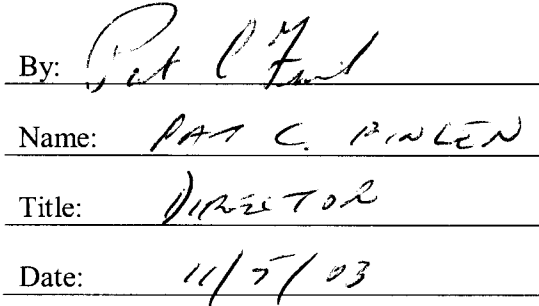 By: Pat C
Name: PAT C. FINLEN
Title: DIRECTOR
Date: 11/5/03